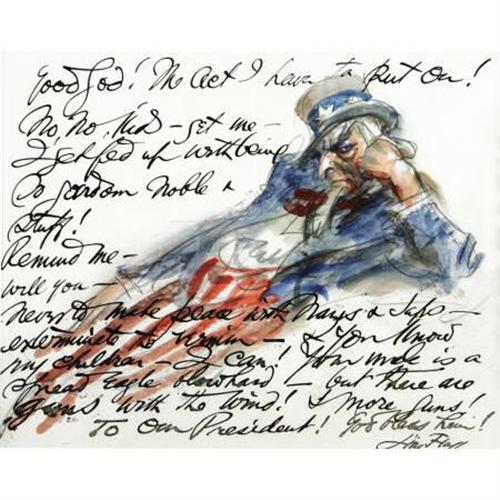 Good God! The act I have to put on!
No, No, Kid — get me —
I get fed up with being
So noble &
stuff!
Remind me —
will you —
never to make peace with Nazis & Japs —
exterminate the vermin — & you know
my children — I can! Your uncle is a
spread eagle blowhard — but there are
guns with the wind! & more guns!
To our President! God bless him!